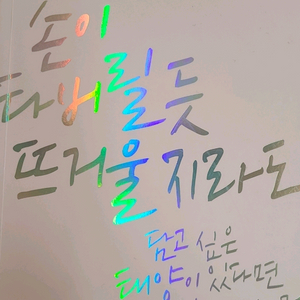 손이
타버릴듯
뜨거울지라도
담고 싶은
태양이 있다면